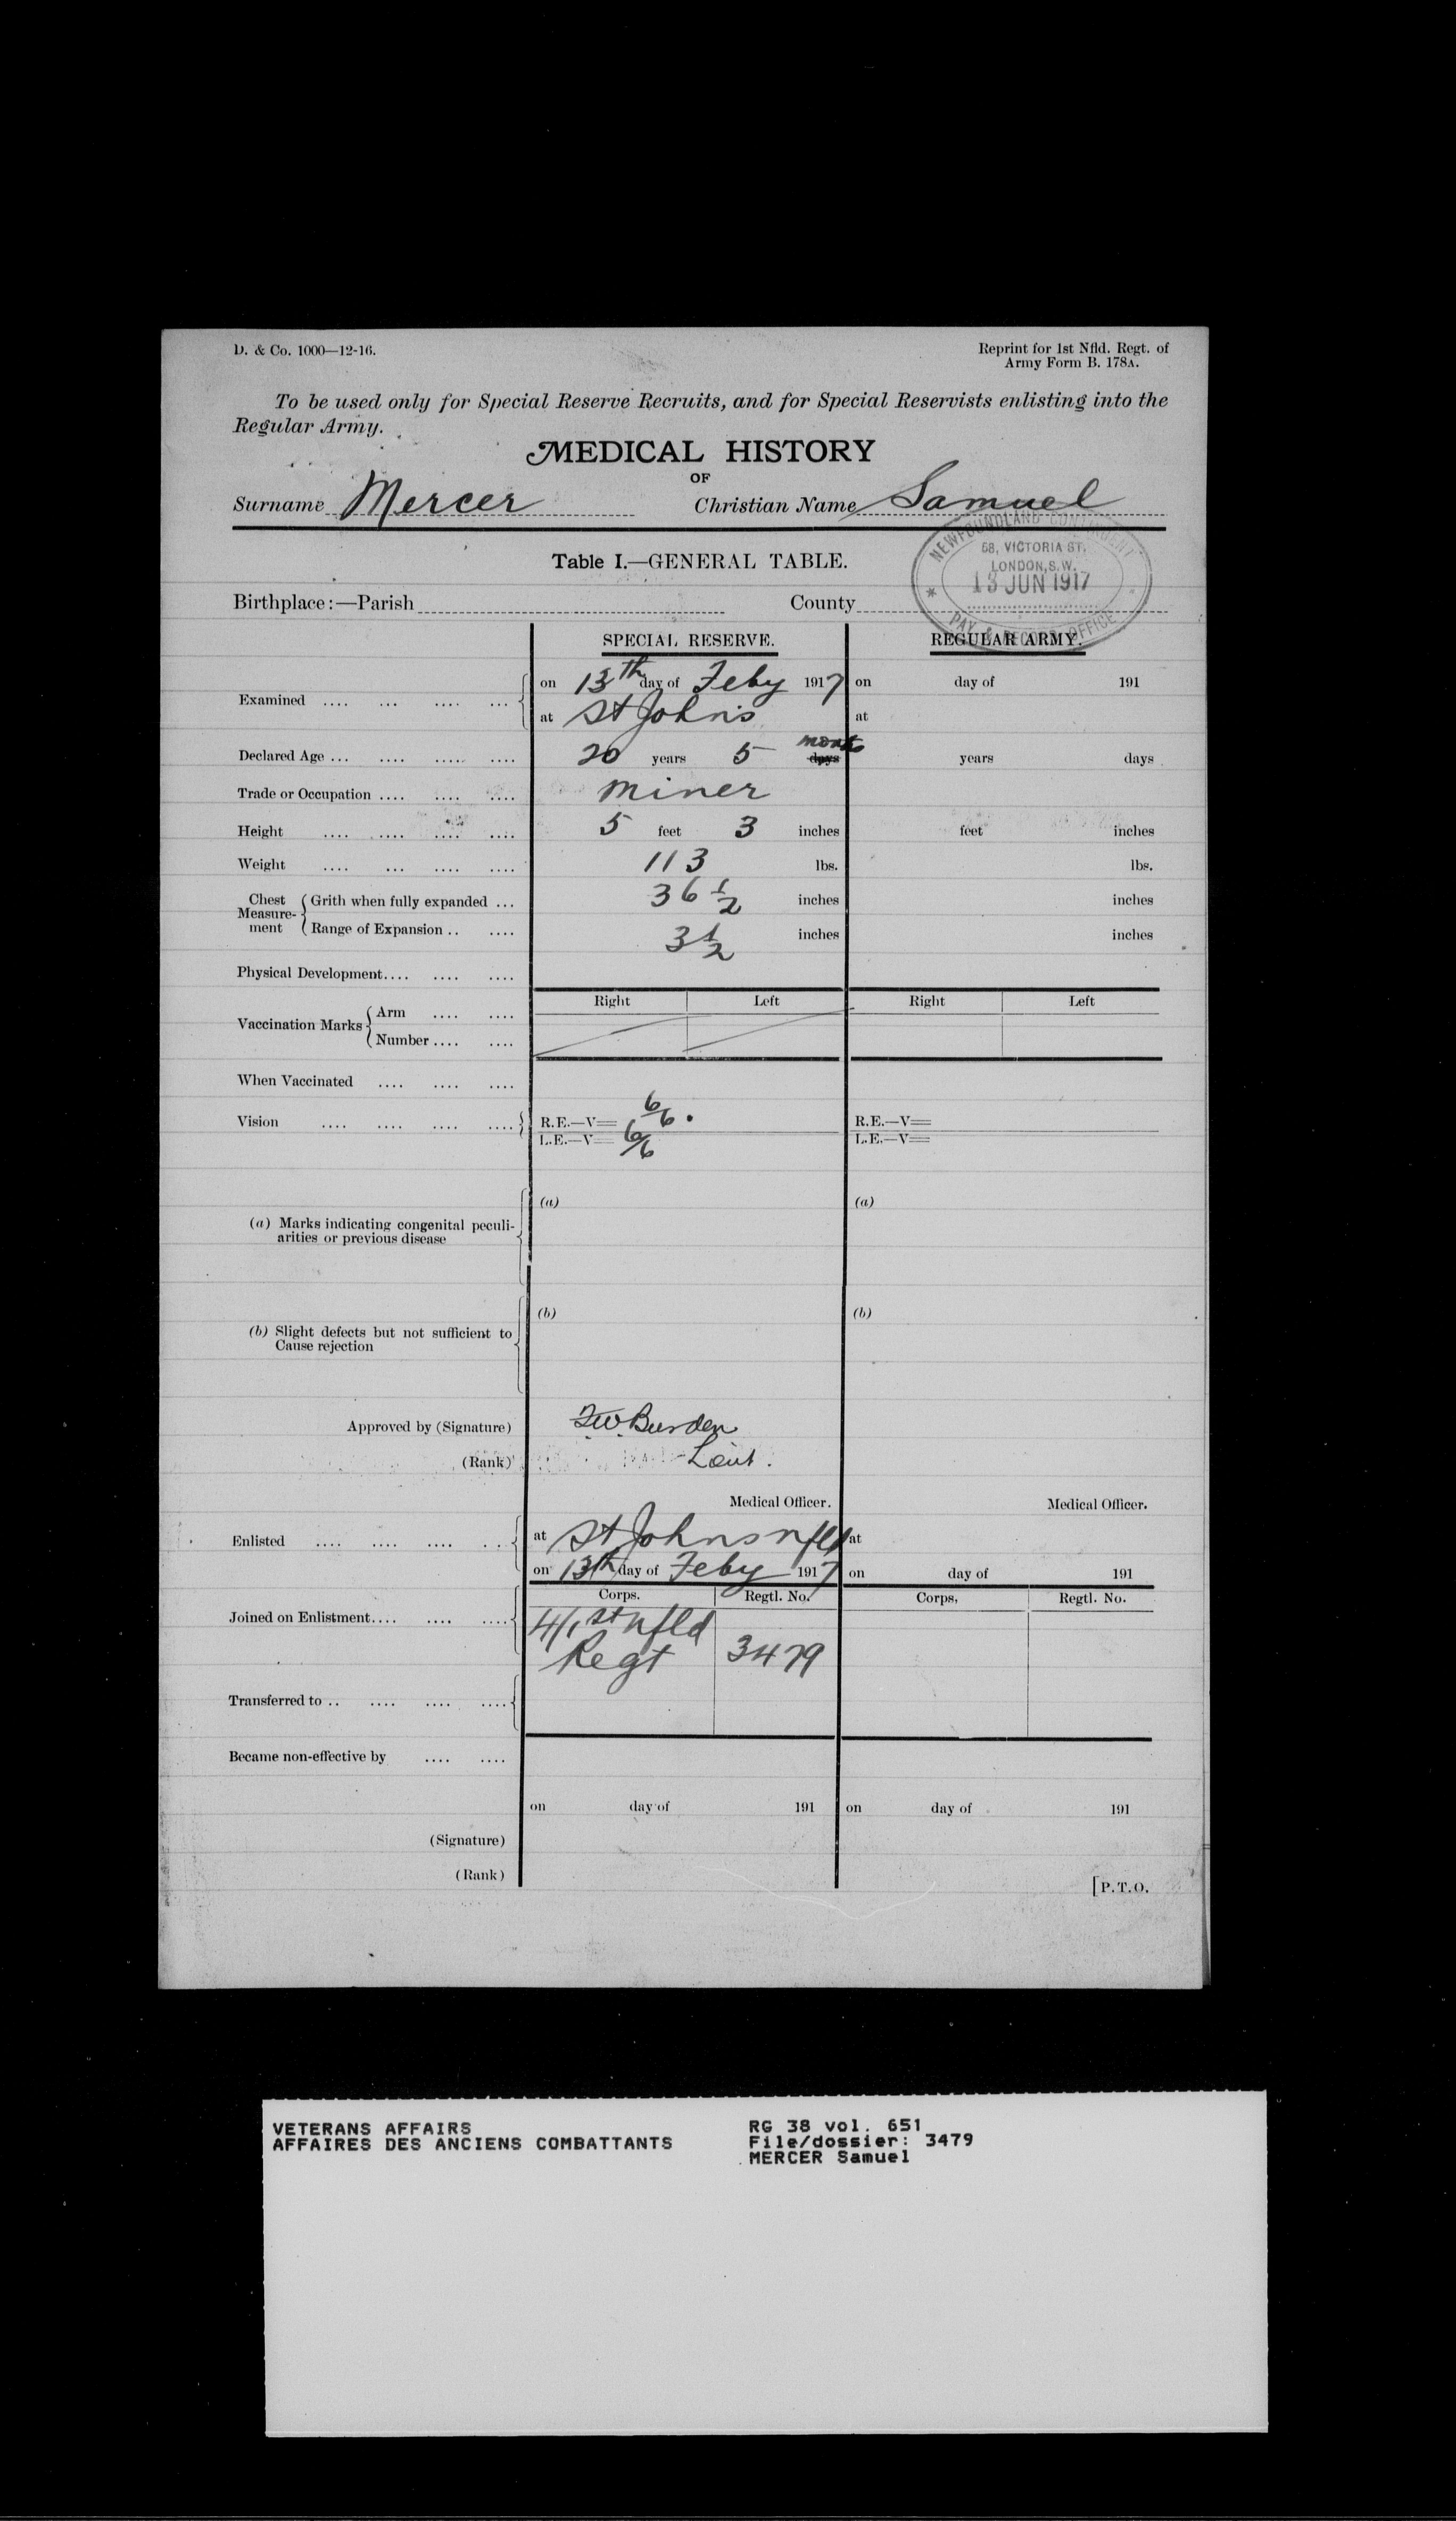 D. & Co. 1000—12-16.
Reprint for 1st Nfld. Regt. of
Army Form B. 178A.
To be used only for Special Reserve Recruits, and for Special Reservists enlisting into the
Regular Army.
MEDICAL HISTORY
OF
Surname Mercer Christian Name Samuel
NEWFOUNDLAND CONTINGENT
58, VICTORIA ST.
LONDON, S.W.
13 JUN 1917
PAY & RECORD OFFICE
Table I.—GENERAL TABLE.
Birthplace:—Parish County
SPECIAL RESERVE. REGULAR ARMY.
Examined .... ... .... ...
on 13th day of Feby 1917 on day of 191
at St Johns at
Declared Age ... .... ..... .... 20 years 5 months days years days
Trade or Occupation .... .... .... miner
Height .... .... .... .... 5 feet 3 inches feet inches
Weight .... ... .... .... 113 lbs. lbs.
Chest Measurement Grith when fully expanded ... 36 1/2 inches inches
Range of Expansion .. .... 3 1/2 inches inches
Physical Development.... .... ....
Right Left Right Left
Vaccination Marks Arm .... ....
Number .... ....
When Vaccinated .... .... ....
Vision .... .... .... .... R.E.—V= 6/6. R.E.—V=
L.E.—V= 6/6 L.E.—V=
(a) (a)
(a) Marks indicating congenital peculi-
arities or previous disease
(b) (b)
(b) Slight defects but not sufficient to
Cause rejection
Approved by (Signature) FW Burden
(Rank) Lieut.
Medical Officer. Medical Officer.
Enlisted .... .... .... ... at St Johns nfld at
on 13th day of Feby 1917 on day of 191
Corps. Regtl. No. Corps. Regtl. No.
Joined on Enlistment.... .... .... 4/1st nfld
Regt 3479
Transferred to .. .... .... ....
Became non-effective by .... ....
on day of 191 on day of 191
(Signature)
(Rank)
[P.T.O.
VETERANS AFFAIRS
AFFAIRES DES ANCIENS COMBATTANTS
RG 38 vol. 651
File/dossier: 3479
MERCER Samuel